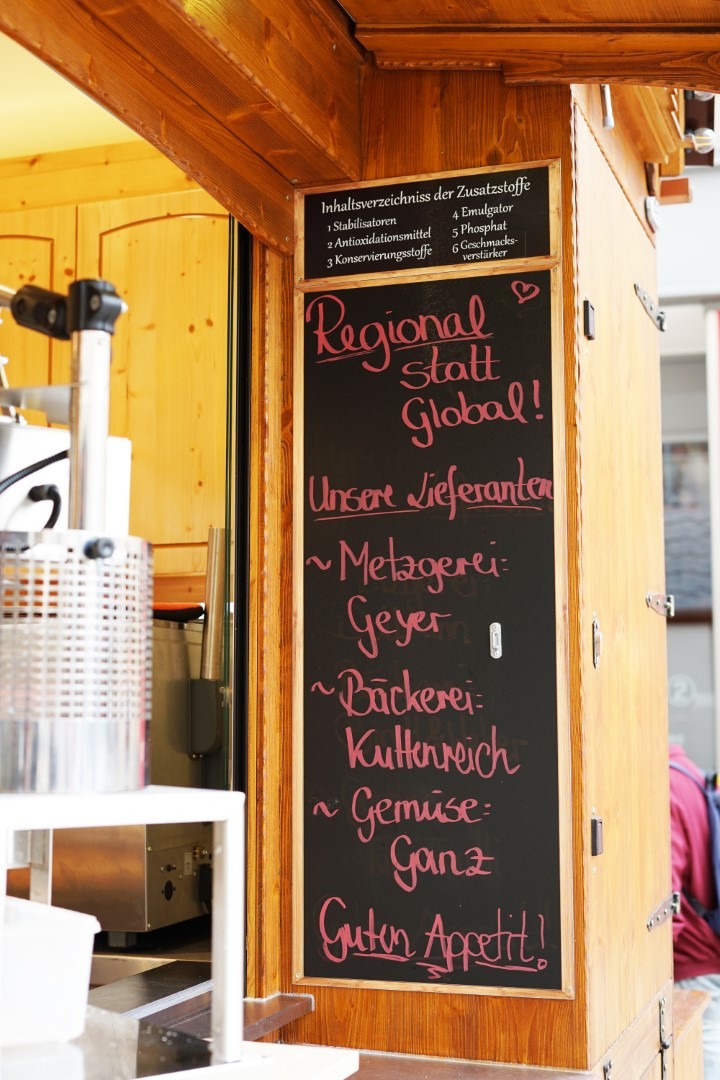 Inhaltsverzeichniss der Zusatzstoffe
1 Stabilisatoren
2 Antioxidationsmittel
3 Konservierungsstoffe
4 Emulgator
5 Phosphat
6 Geschmacks-
verstärker
Regional
statt
Global!
Unsere Lieferanten
~ Metzgerei:
Geyer
~ Bäckerei:
Kuttenreich
~ Gemüse:
Ganz
Guten Appetit!